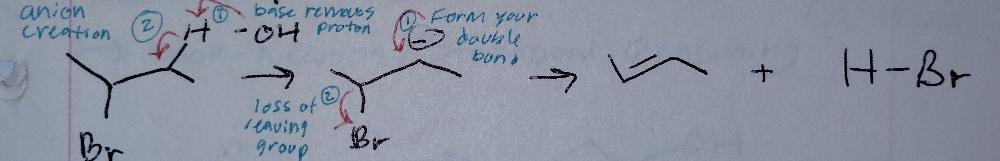 anion
creation
②
H
①
base removes
proton
-OH
Br
①
Form your
double
bond
⊖
loss of
leaving
group
②
Br
+
H-Br